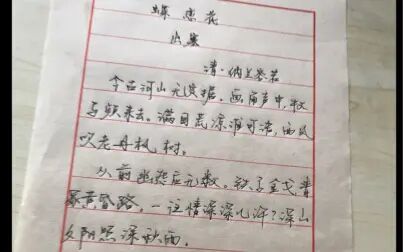 蝶恋花
出塞
清·纳兰容若
今古河山无定据。画角声中，牧
马频来去。满目荒凉谁可语，西风
吹老丹枫树。
从前幽怨应无数。铁马金戈，青
冢黄昏路。一往情深深几许？深山
夕阳照深秋雨。